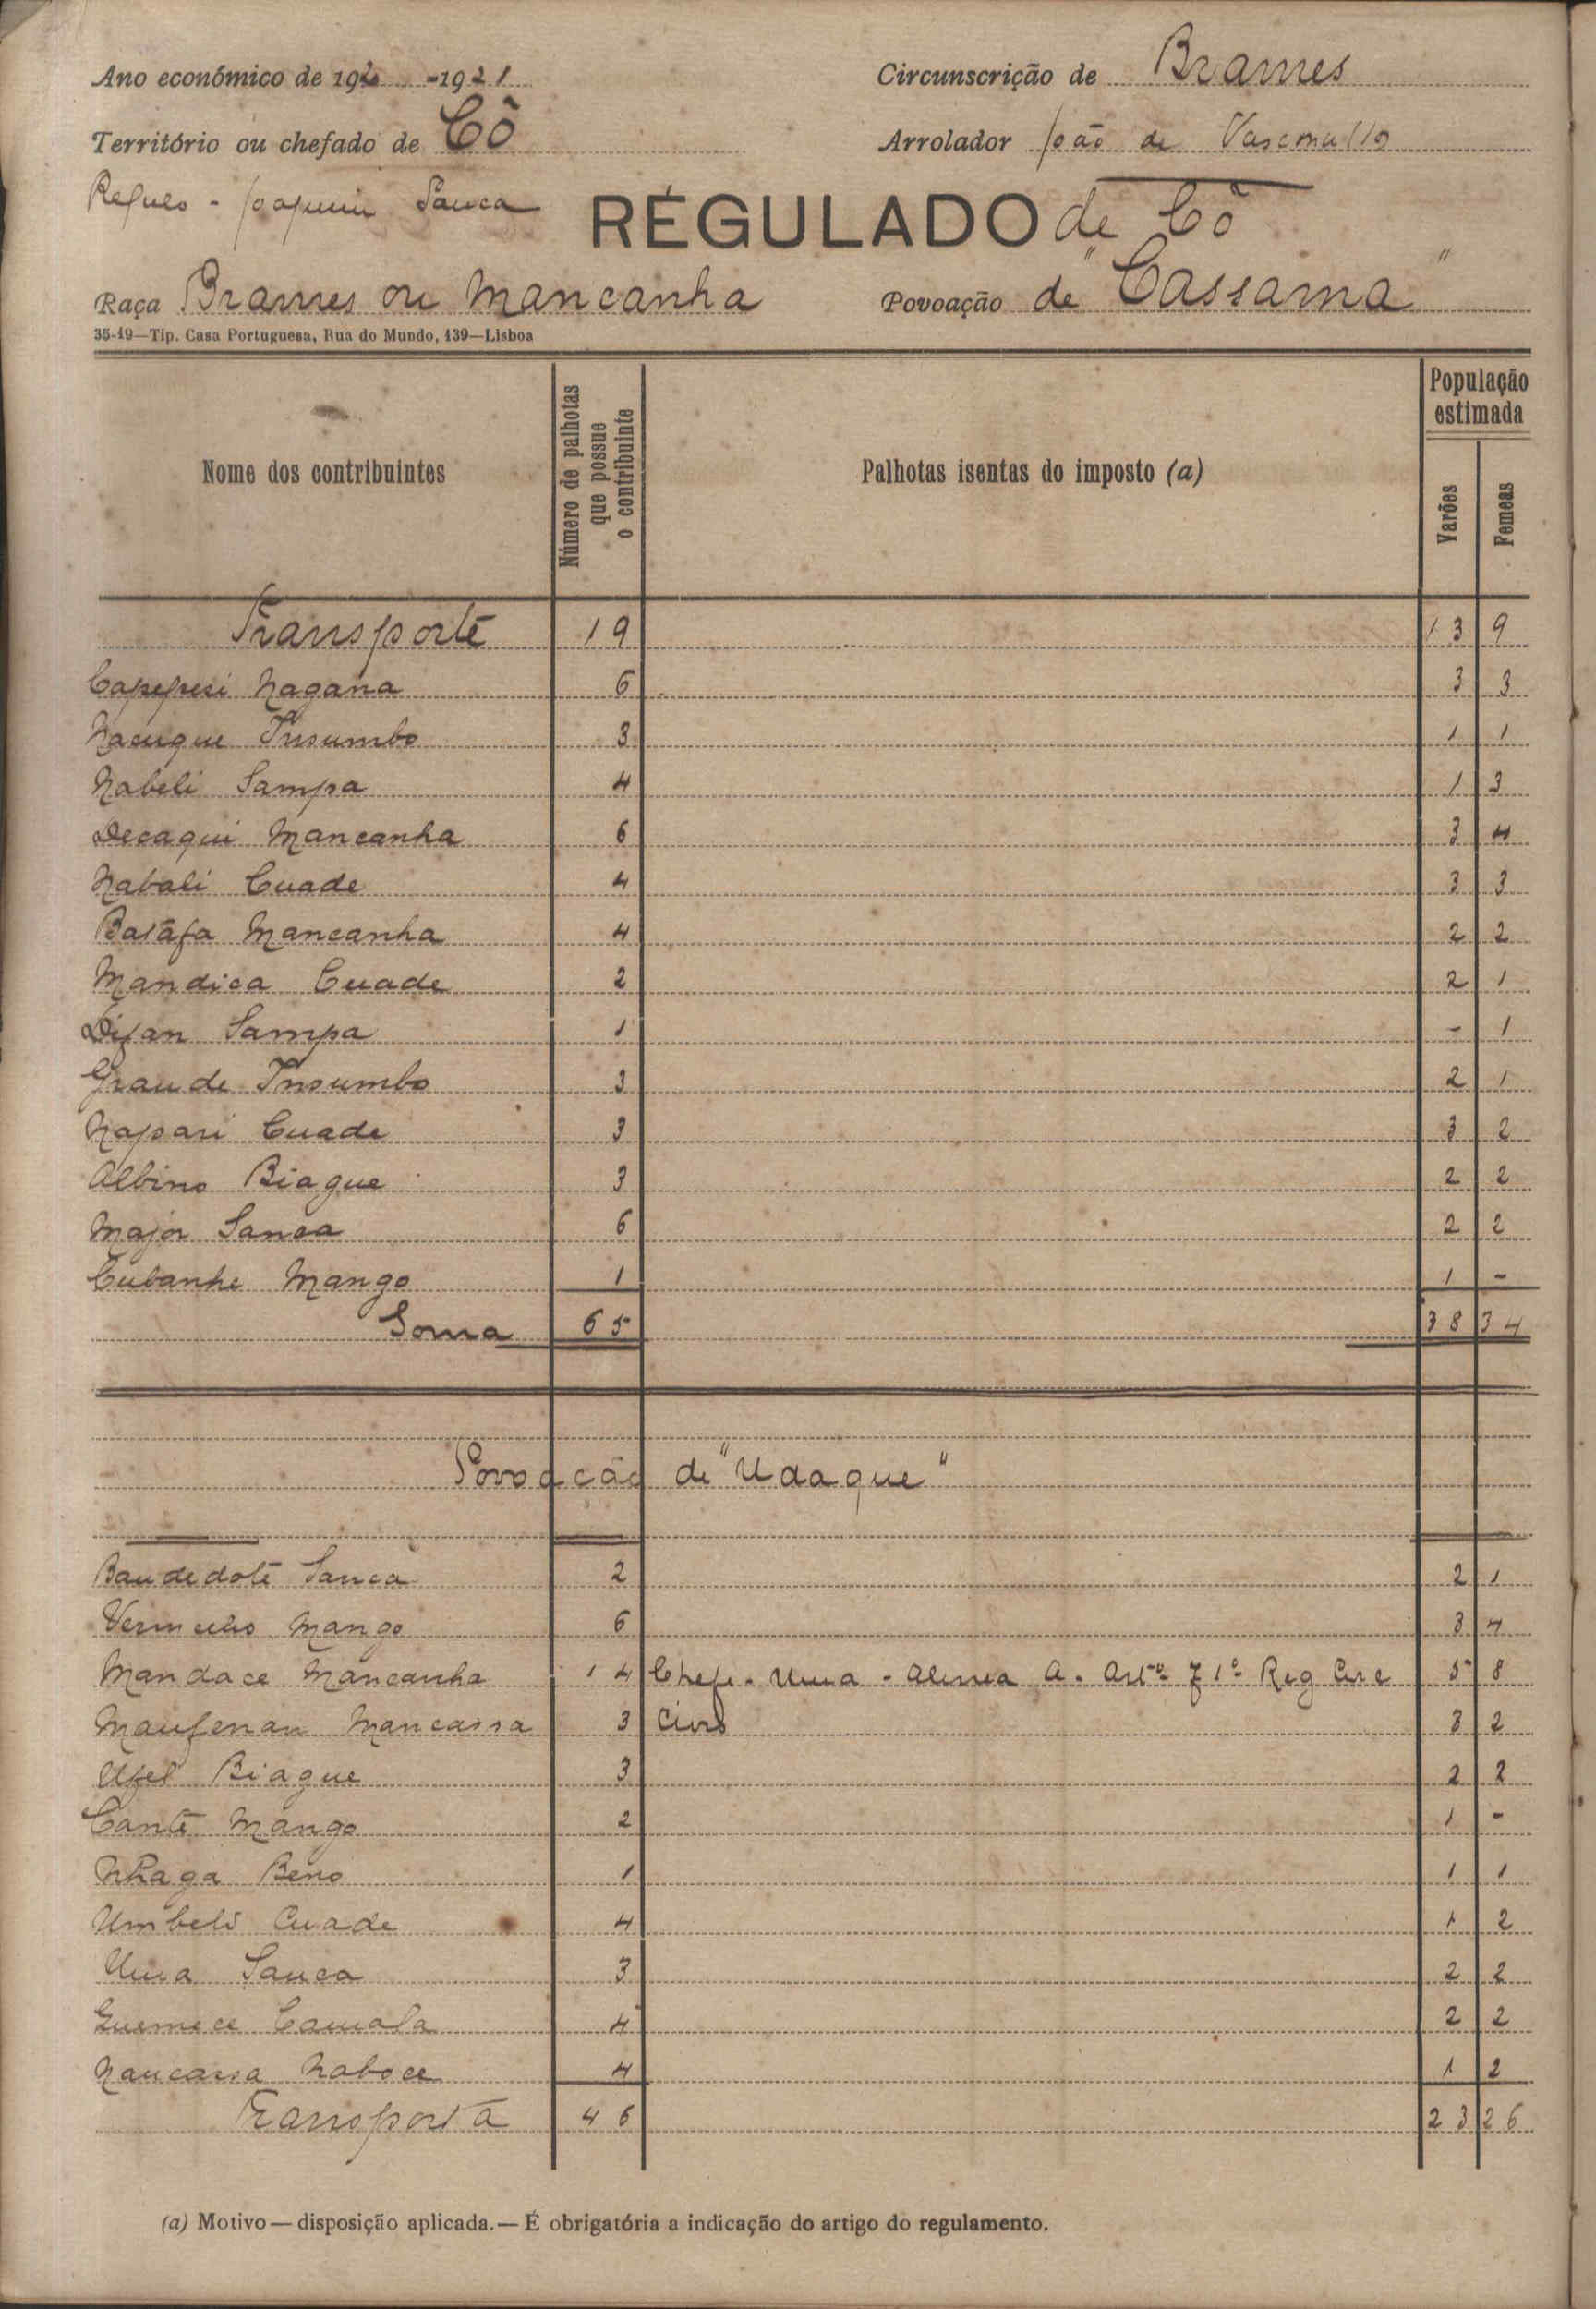 Ano económico de 1920-1921
Circunscrição de Brames
Território ou chefado de Cô
Arrolador João de Vasconcellos
Regulo - Joaquim Sanca
RÉGULADO de Cô
Raça Brames ou Mancanha
Povoação de "Cassama"
35-19—Tip. Casa Portuguesa, Rua do Mundo, 139—Lisboa
Nome dos contribuintes
Número de palhotas que possue o contribuinte
Palhotas isentas do imposto (a)
População estimada
Varões
Femeas
Transporte 19 13 9
Nagana 6 3 3
Nacuque Insumbo 3 1 1
Nabeli Sampa 4 1 3
Decaqui Mancanha 6 3 4
Nabali Cuade 4 3 3
Batáfa Mancanha 4 2 2
Mandica Cuade 2 2 1
Difan Sampa 1 - 1
Grande Insumbo 3 2 1
Napari Cuade 3 3 2
Albino Biague 3 2 2
Major Sanca 6 2 2
Cubanhe Mango 1 1 -
Soma 65 38 34
Povoação de "Udaque"
Baudedoté Sanca 2 2 1
Vermelho Mango 6 3 4
Mandace Mancanha 14 Chefe - Uma - Alinea A. Artº 71º Reg Circ 5 8
Mancassa 3 Civis 3 2
Ufel Biague 3 2 2
Canté Mango 2 1 -
Nhaga Beno 1 1 1
Umbelo Cuade 4 1 2
Uma Sanca 3 2 2
Guemece Camala 4 2 2
Naucassa Naboce 4 1 2
Transporta 46 23 26
(a) Motivo — disposição aplicada. — É obrigatória a indicação do artigo do regulamento.